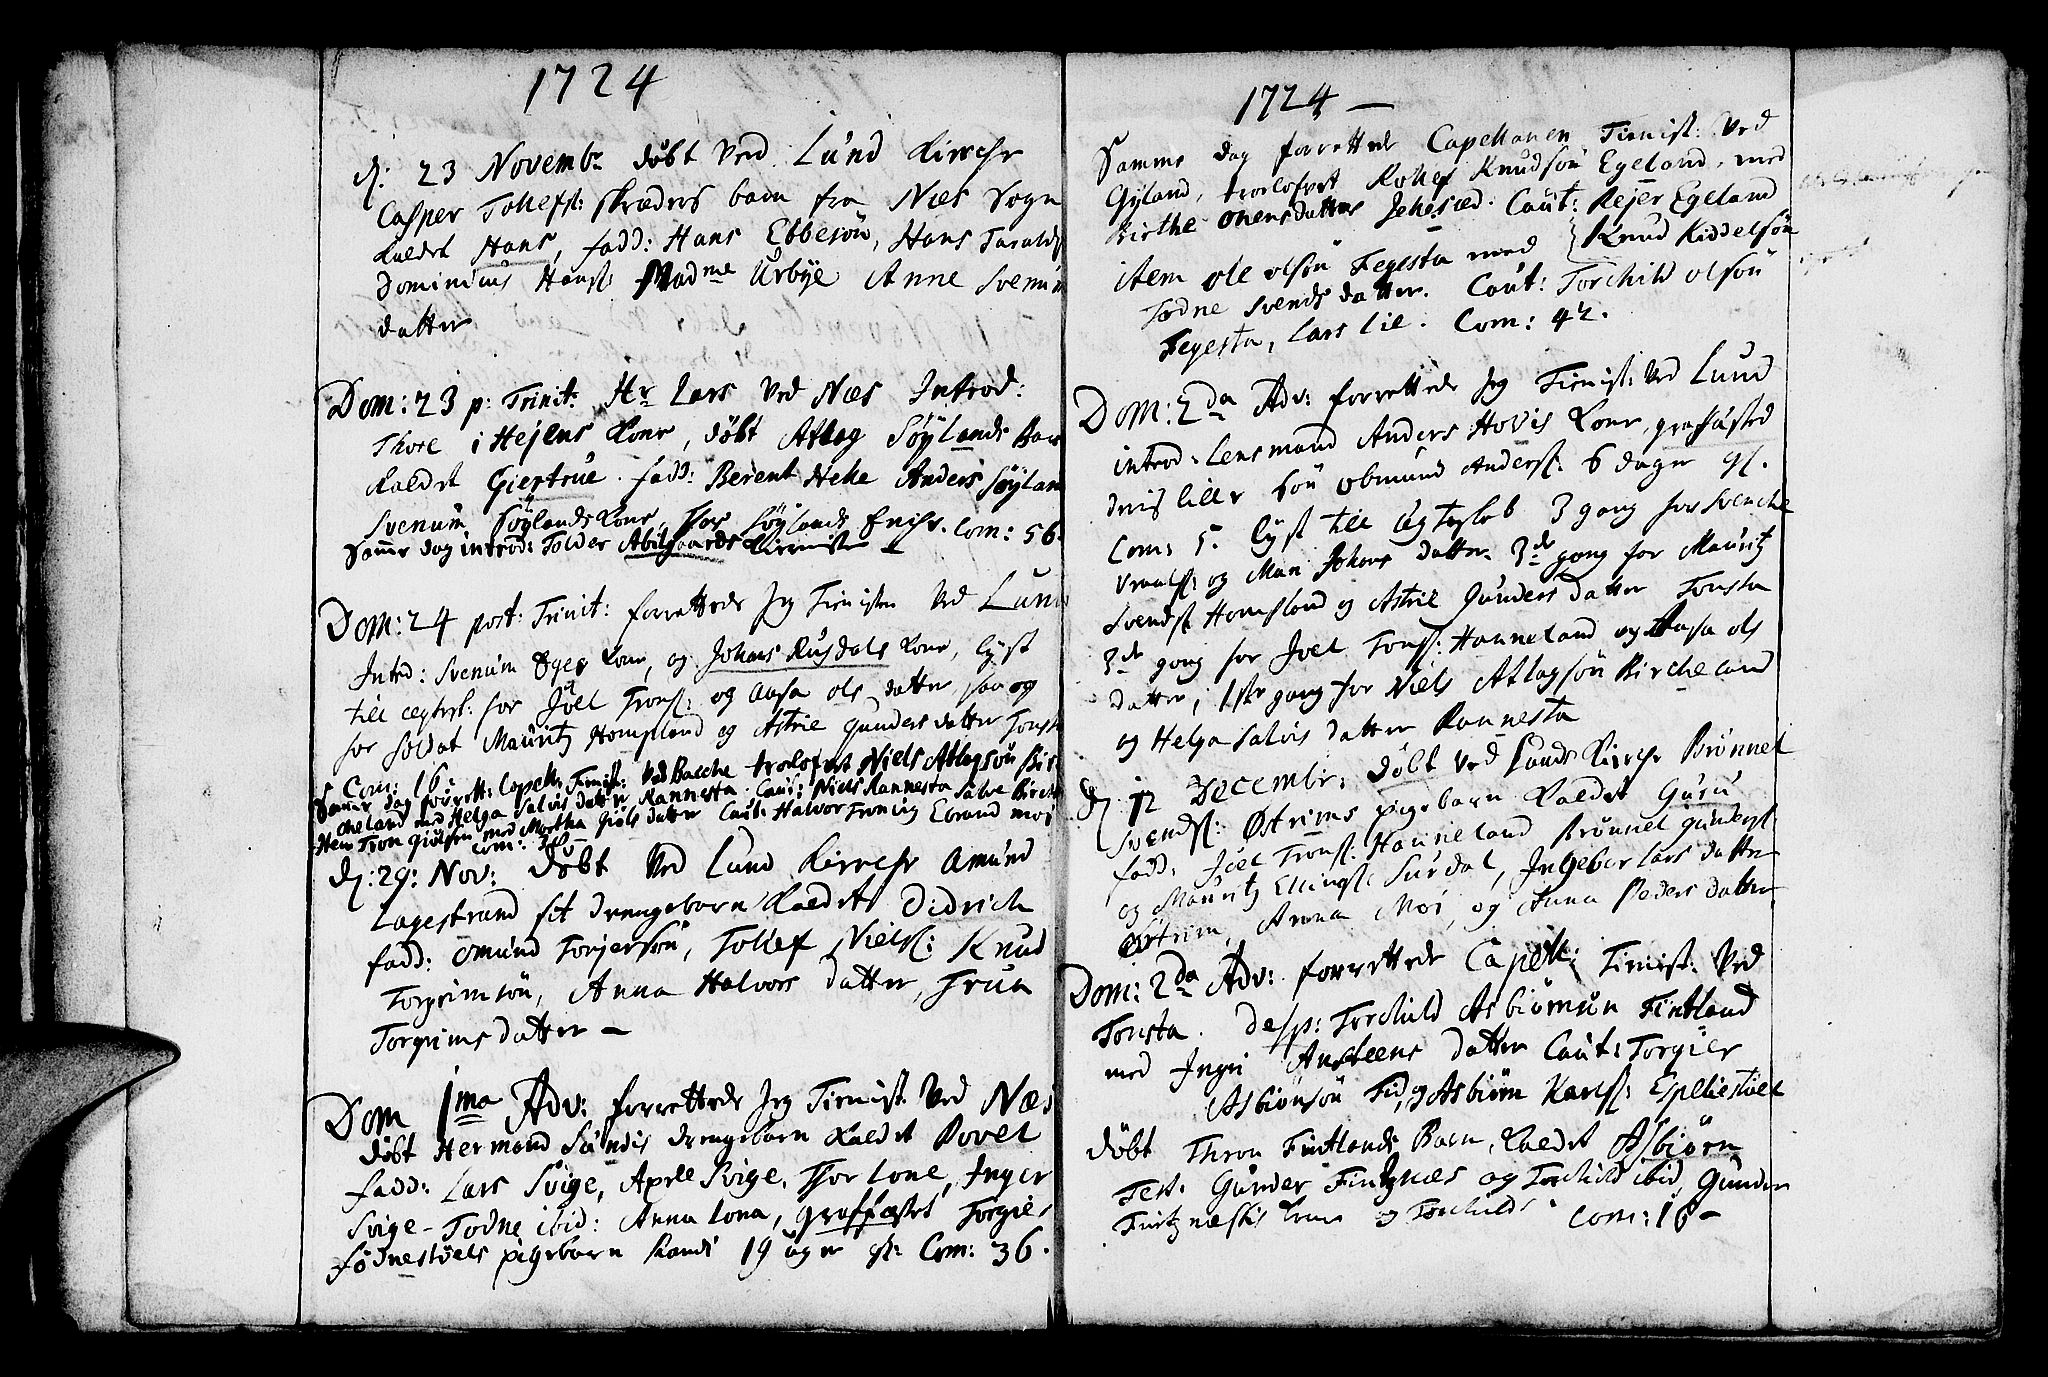 1724
d: 23 Novembr døbt ved Lund Kirche
Casper Tollefs: skræders barn fra Næs Sogn
kaldet Hans, fadd: Hans Ebbesøn, Hans Taralds
Dominicus Hans: Madme Urbye Anne Svenum
datter
Dom: 23 p: Trinit: Hr Lars ved Næs Introd:
Thore i Hejens Kone, døbt Atlag Søylands Bar
kaldet Giertrue. fadd: Berent Helle Anders Søylan
Svenum Søylands Kone, Thor Søylands Enche. Com: 56.
Samme dag introd: Tolder Abilgaards
Dom: 24 post: Trinit: forrettede Jeg Tienisten ved Lund
Introd: Svenum Eges Kone, og Johans Rusdals Kone, lyst
till ægtesk: for Joel Trons: og Aasa ols datter saa og
for soldat Mauritz Hompland og Astrie Gunders datter Tonst
Com: 16.
Samme dag forrett: Capell: Tienist: ved Bache trolofvet Niels Atlagsøn Bir
cheland med Helga Salvis datter Rannesta. Caut: Niels Rannesta Salve Birch
Item Tron Giølsen med Martha Giøls datter Caut: Halvor Tronsig Ebrand moi
d: 29: Nov: Døbt ved Lund Kirche Amund
Lagestrand sit drengebarn kaldet Didrich
fadd: Omund Torjersøn, Tollef Niels: Knud
Torgrimsøn, Anna Halvors datter, Trua
Torgrims datter —
Dom 1ma Adv: forrettede Jeg Tienist: ved Næs
døbt Hermand Sundis drengebarn kaldet Povel
fadd: Lars Svige, Axell Svige, Thor Lone, Inger
Svige - Todne ibid: Anna Lona, graffæstet Torgier
fødnestøels pigebarn Randi 19 uger gl: Com: 36.
1724 —
Samme dag forrettede Capellanen Tienist: ved
Gyland, trolofvet Rollef Knudsøn Egeland, med
Birthe onensdatter Jehesæd. Caut: Rejer Egeland
Knud Kiddelsøn
item ole olsøn Fegesta med
Todne Svends datter. Caut: Torchild olsøn
Fegesta, Lars Lie. Com: 42.
Dom: 2da Adv: forrettede Jeg Tienist: ved Lund
introd: Lensmand Anders Hovis Kone, graffæsted
dris lille søn obmund Anders: 6 dager gl.
Com: 5. lyst till ægteskab 3 gang for Svenche
og Mari Johans datter. 3de gang for Mauritz
Svends: Hompland og Astrie Gunders datter Tonsta
3de gang for Joel Trons: Hanneland og Aasa ols
datter, 1ste gang for Niels Atlagsøn Bircheland
og Helga Salvis datter Rannesta
d: 12 Decembr: Døbt ved Lunds Kirche Brønnel
Svends: Østrims pigebarn kaldet Guru
fadd: Joel Trons: Hanneland Brønnel Gunders:
og Mauritz Ellings: Surdal, Ingebor Lars datter
Østrim, Anna Moi, og Anna Peders datter
Dom: 2da Adv: forrettede Capell: Tienist: ved
Tonsta. Desp: Torchild Asbiørnsøn Fintland
med Ingri Ansteens datter Caut: Torgier
Asbiønsøn Fid, og Asbiørn Karls: Espeliestøel
døbt Thron Fintlands Barn, kaldet Asbiørn
Test: Gunder Fintznæs og Torchild ibid, Gunder
Fintznæssis Kone og Torchilds. Com: 16 —